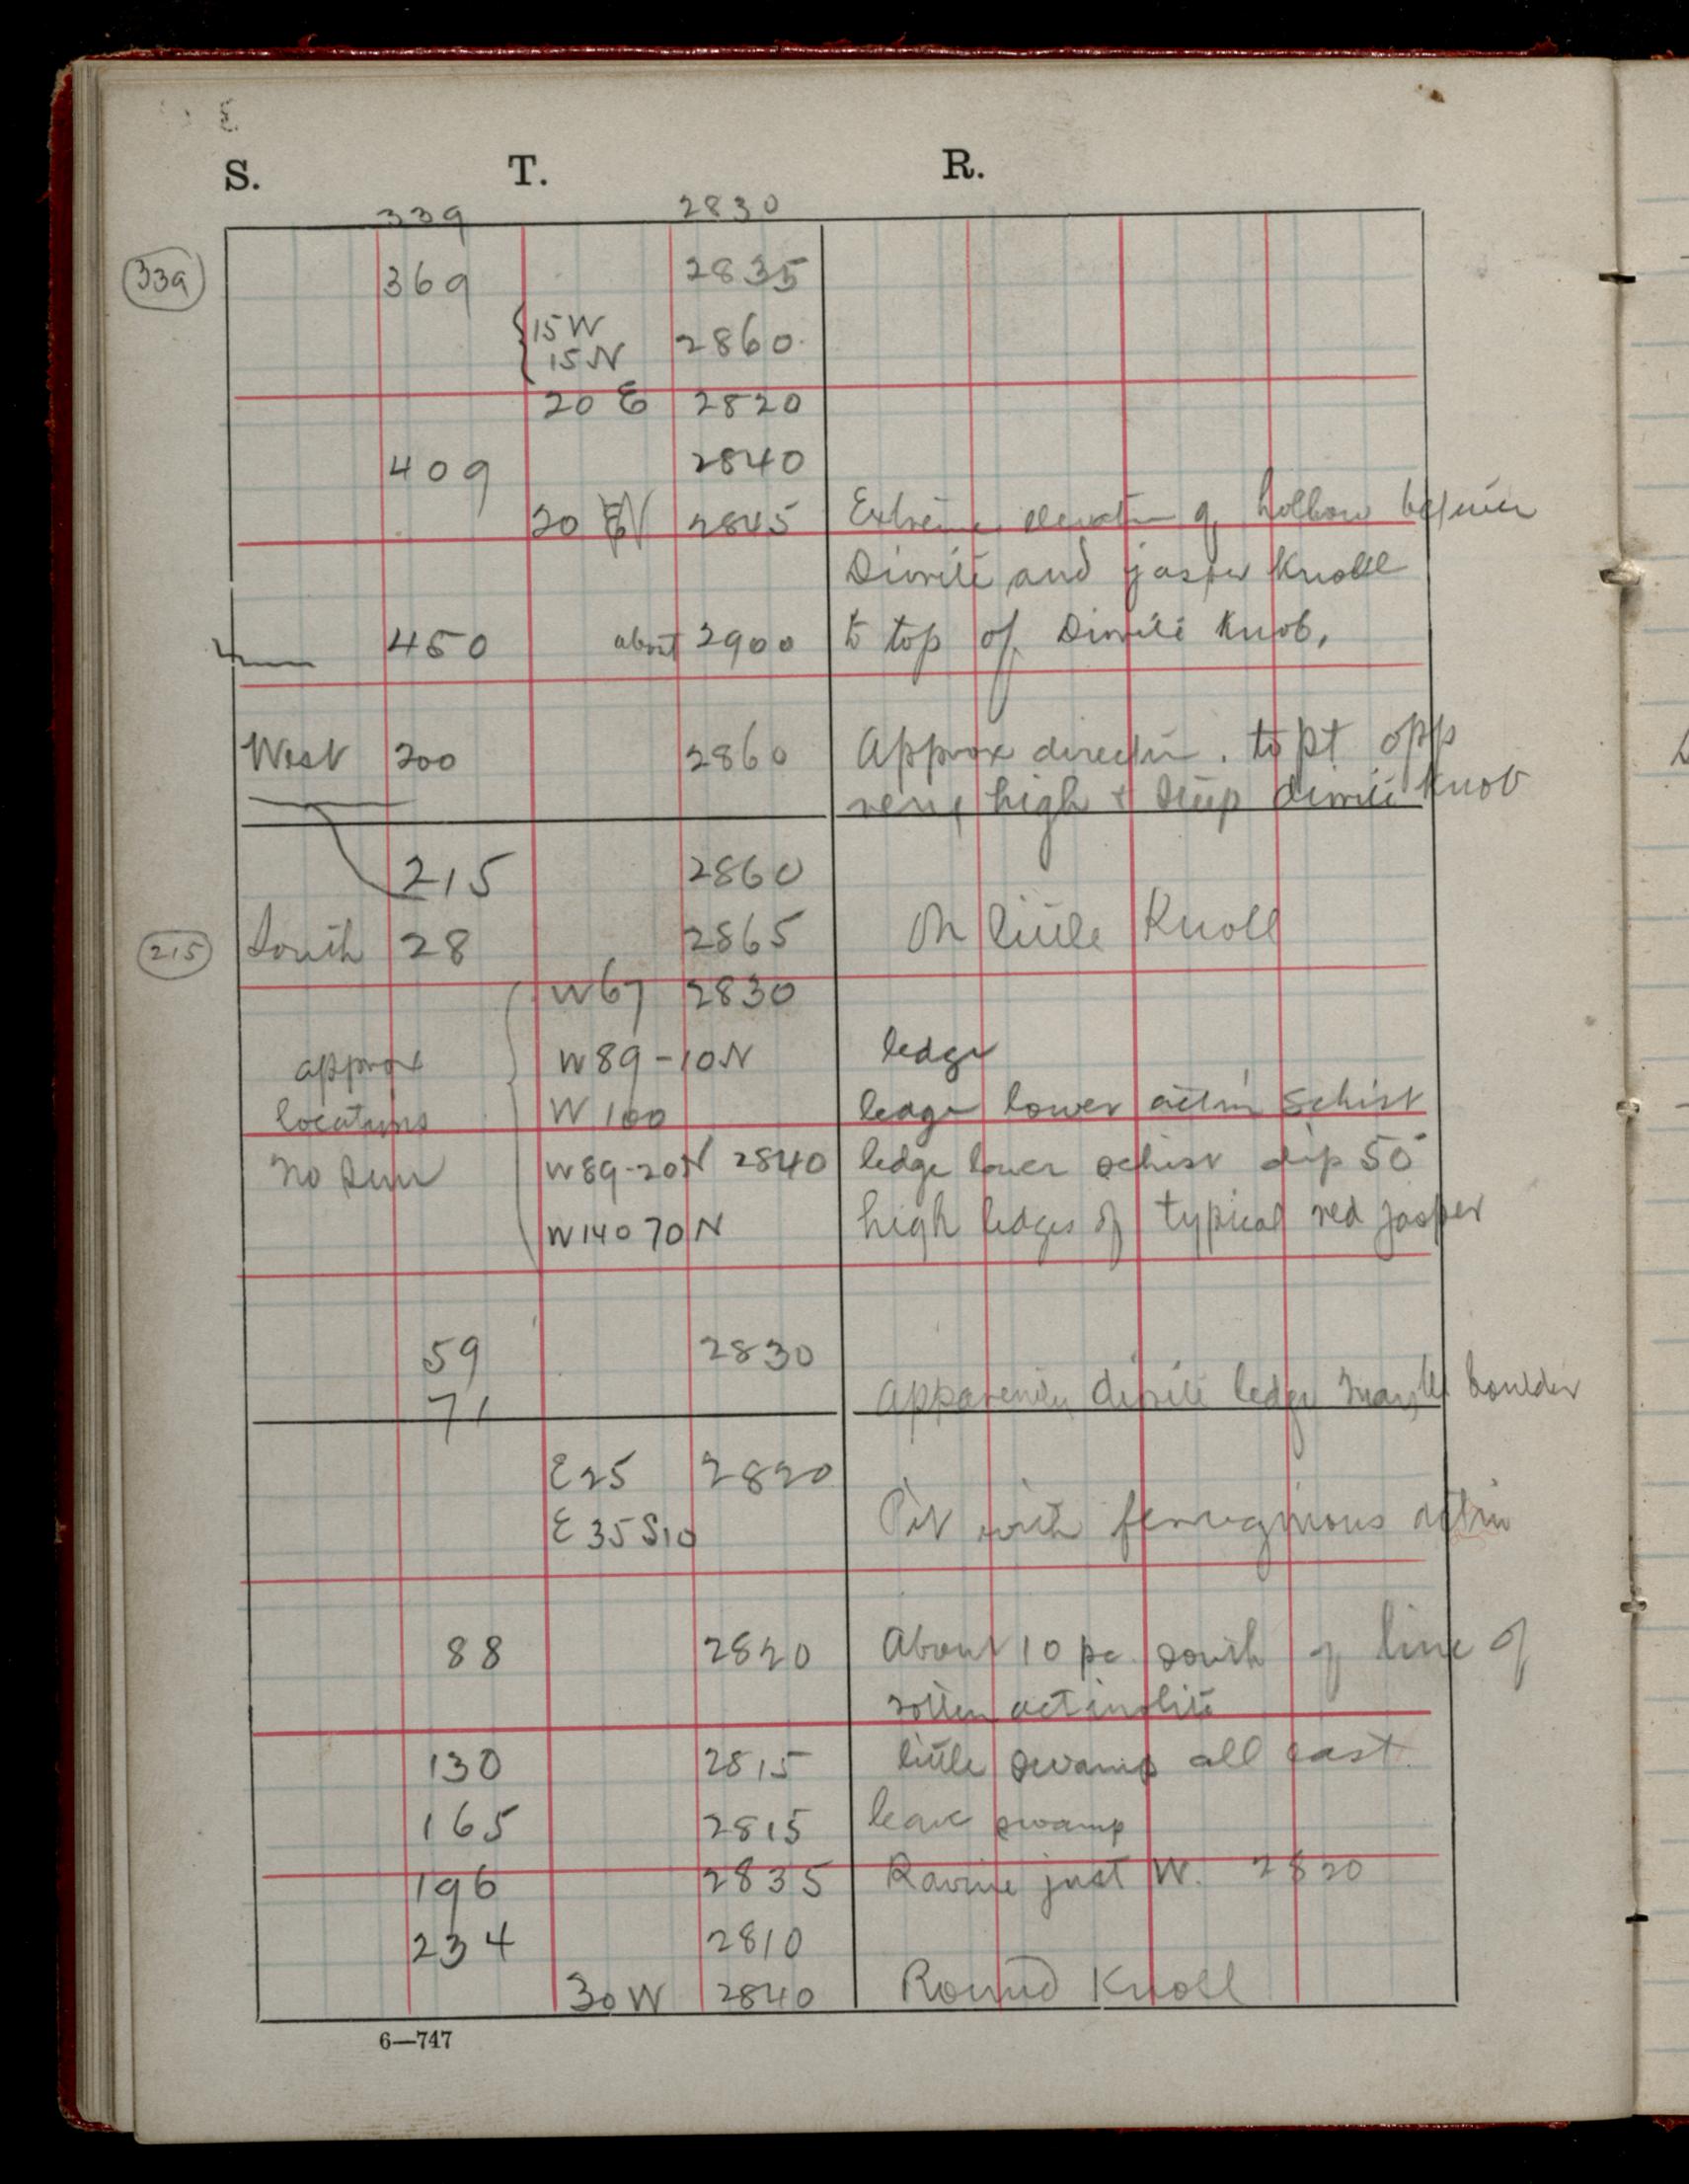 S. T. R.
339 2830
339
369 2835
15 W
15 N 2860
20 E 2820
409 2840
20 N 2845 Extreme elevation of hollow between
Diorite and jasper Knoll
450 about 2900 to top of Diorite Knob.
West 200 2860 Approx direction. to pt opp
very high + steep diorite Knob
215 2860
215 South 28 2865 On little Knoll
W 67 2830
approx W 89-10N ledge
locations W 100 ledge lower actin schist
no sun W 89-20N 2840 ledge lower schist dip 50°
W 140 70 N high ledges of typical red jasper
59 2830
71 Apparently diorite ledge may be boulder
E 25 2820
E 35 S10 Pit with ferruginous actin
88 2820 About 10 pc. south of line of
rotten actinolite
130 2815 little swamp all east.
165 2815 leave swamp
196 2835 Ravine just W. 2820
234 2810
30 W 2840 Round Knoll
6—747